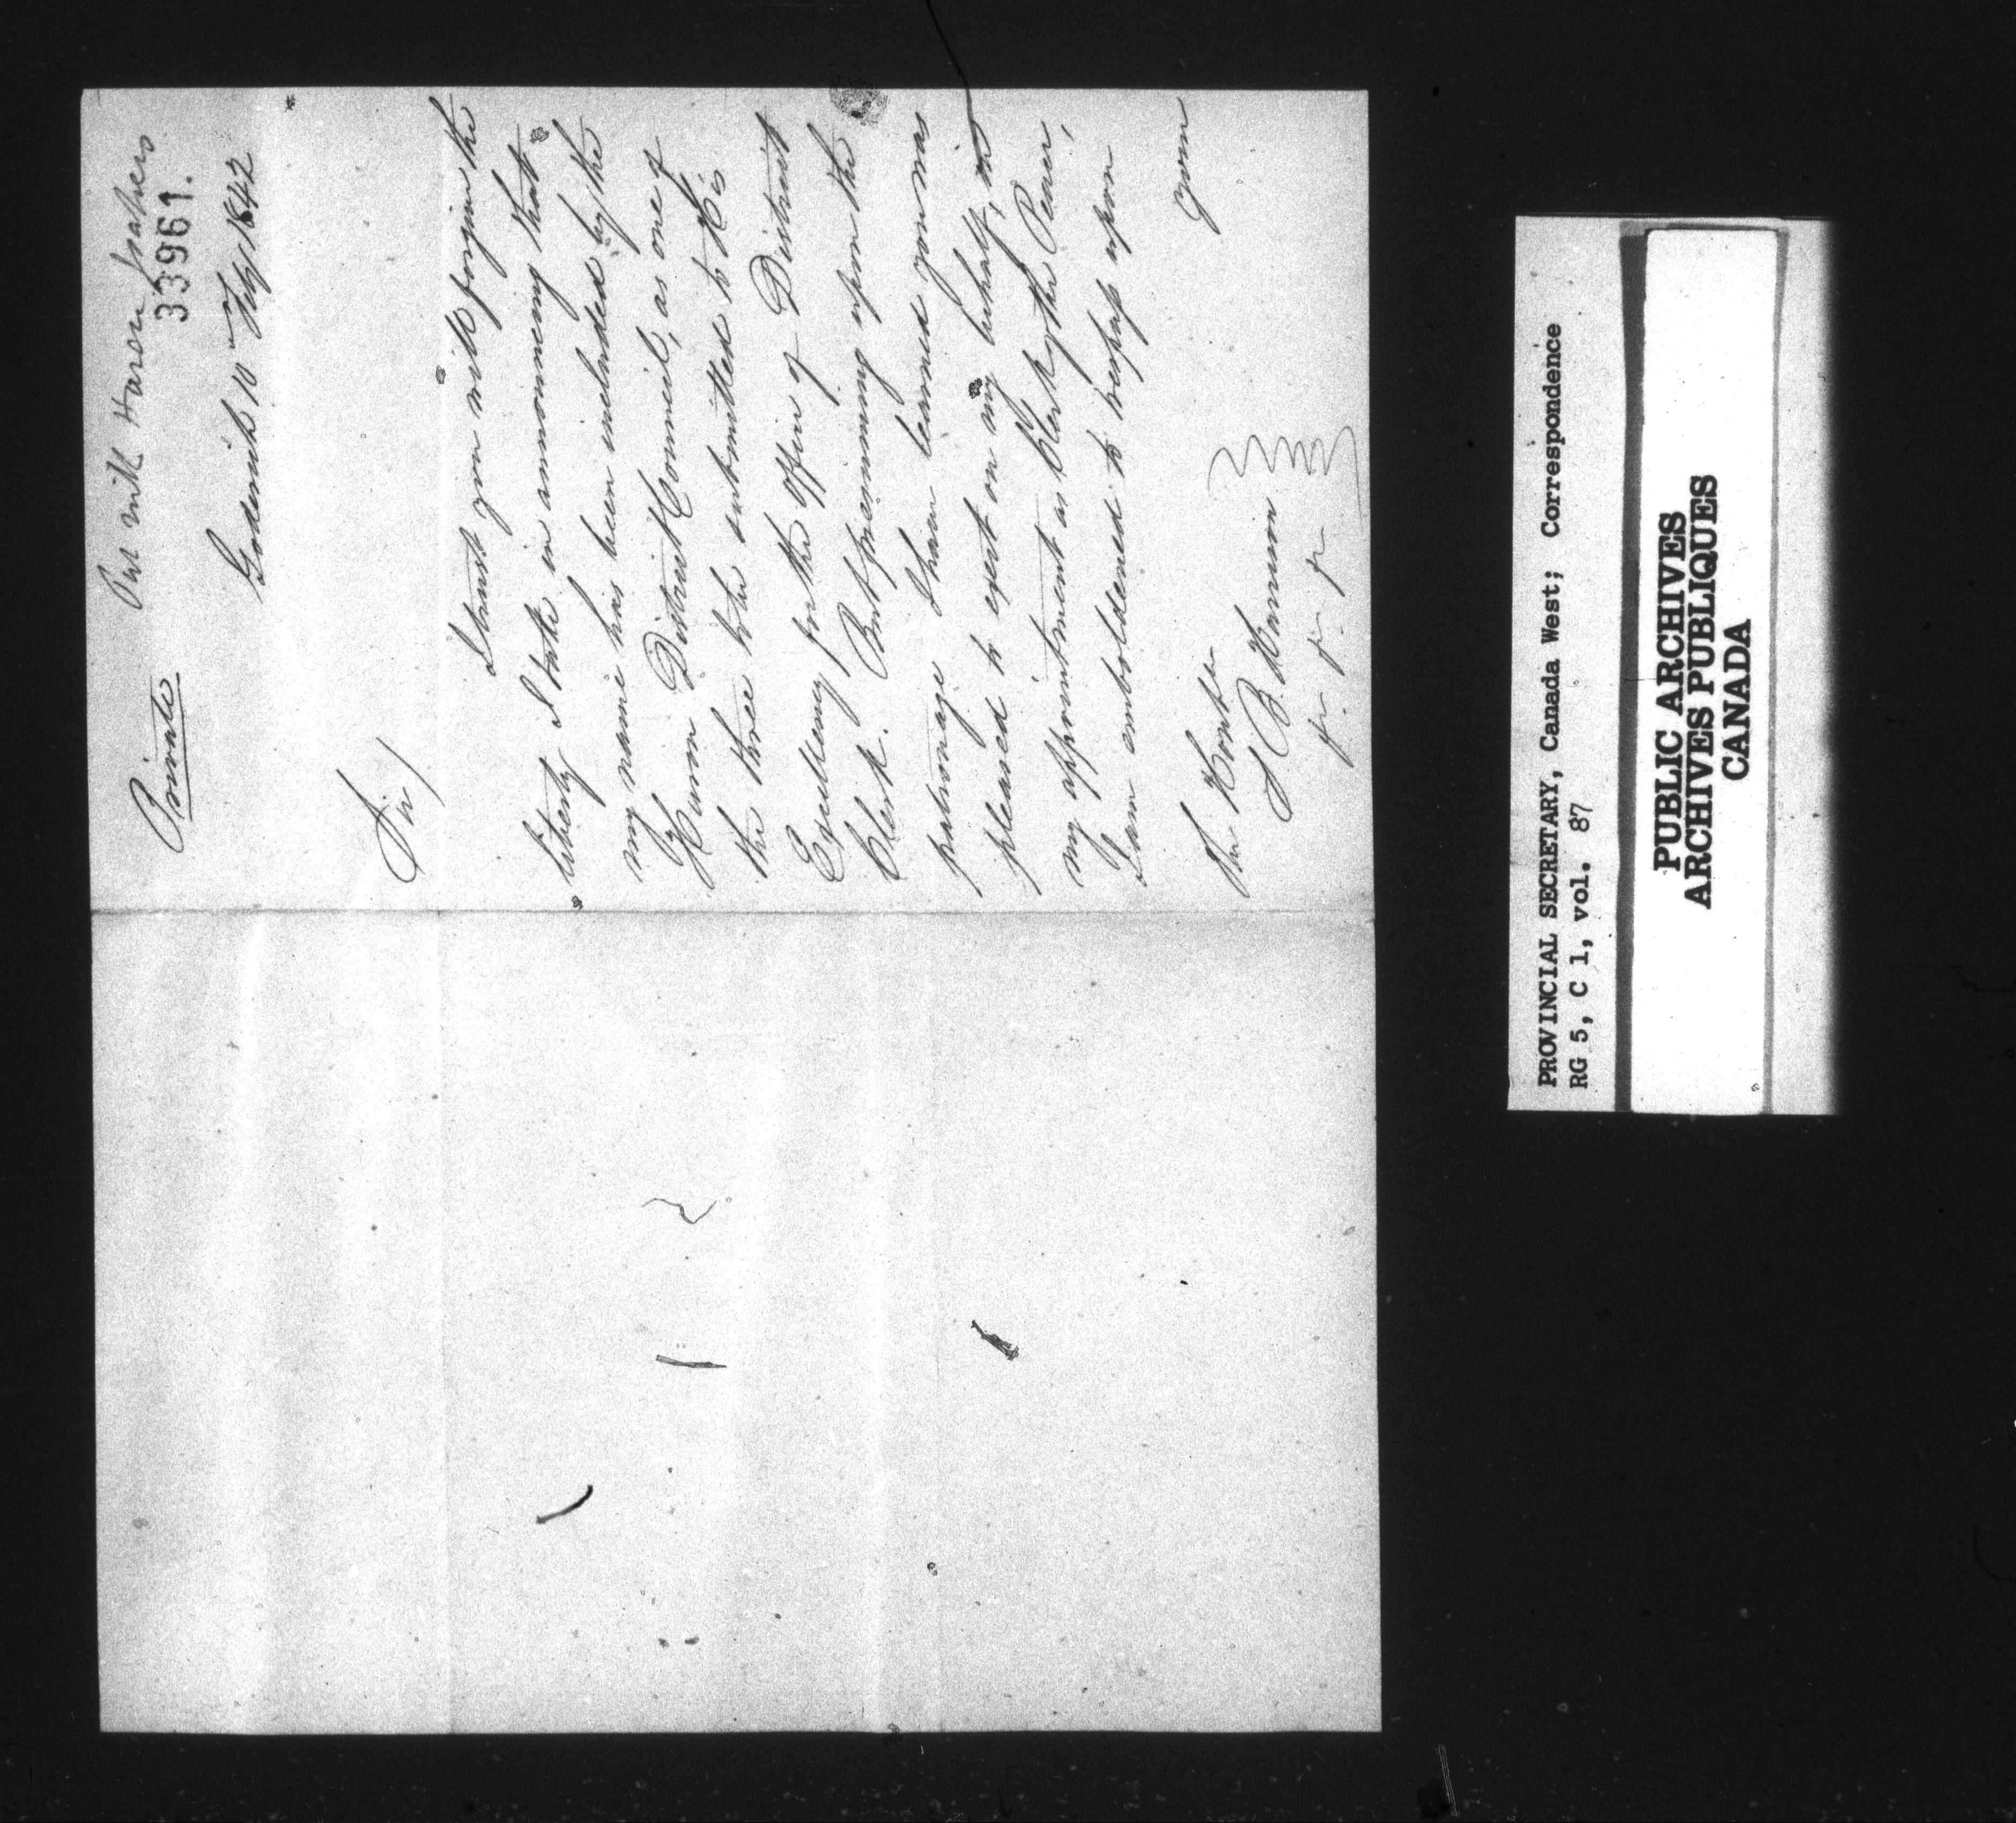 Private
Put with Huron papers
33961.
Goderich 10th Feby 1842
Sir/
I trust you will forgive the
liberty I take in announcing that
my name has been included by the
Huron District Council, as one of
the three to be submitted to His
Excellency for the Office of District
Clerk. But presuming upon the
patronage I have learned you was
pleased to exert on my behalf, in
my appointment as Clerk of the Peace,
I am emboldened to trespass upon
your
The Honble
S B Harrison
&c &c &c
PROVINCIAL SECRETARY, Canada West; Correspondence
RG 5, C 1, vol. 87
PUBLIC ARCHIVES
ARCHIVES PUBLIQUES
CANADA